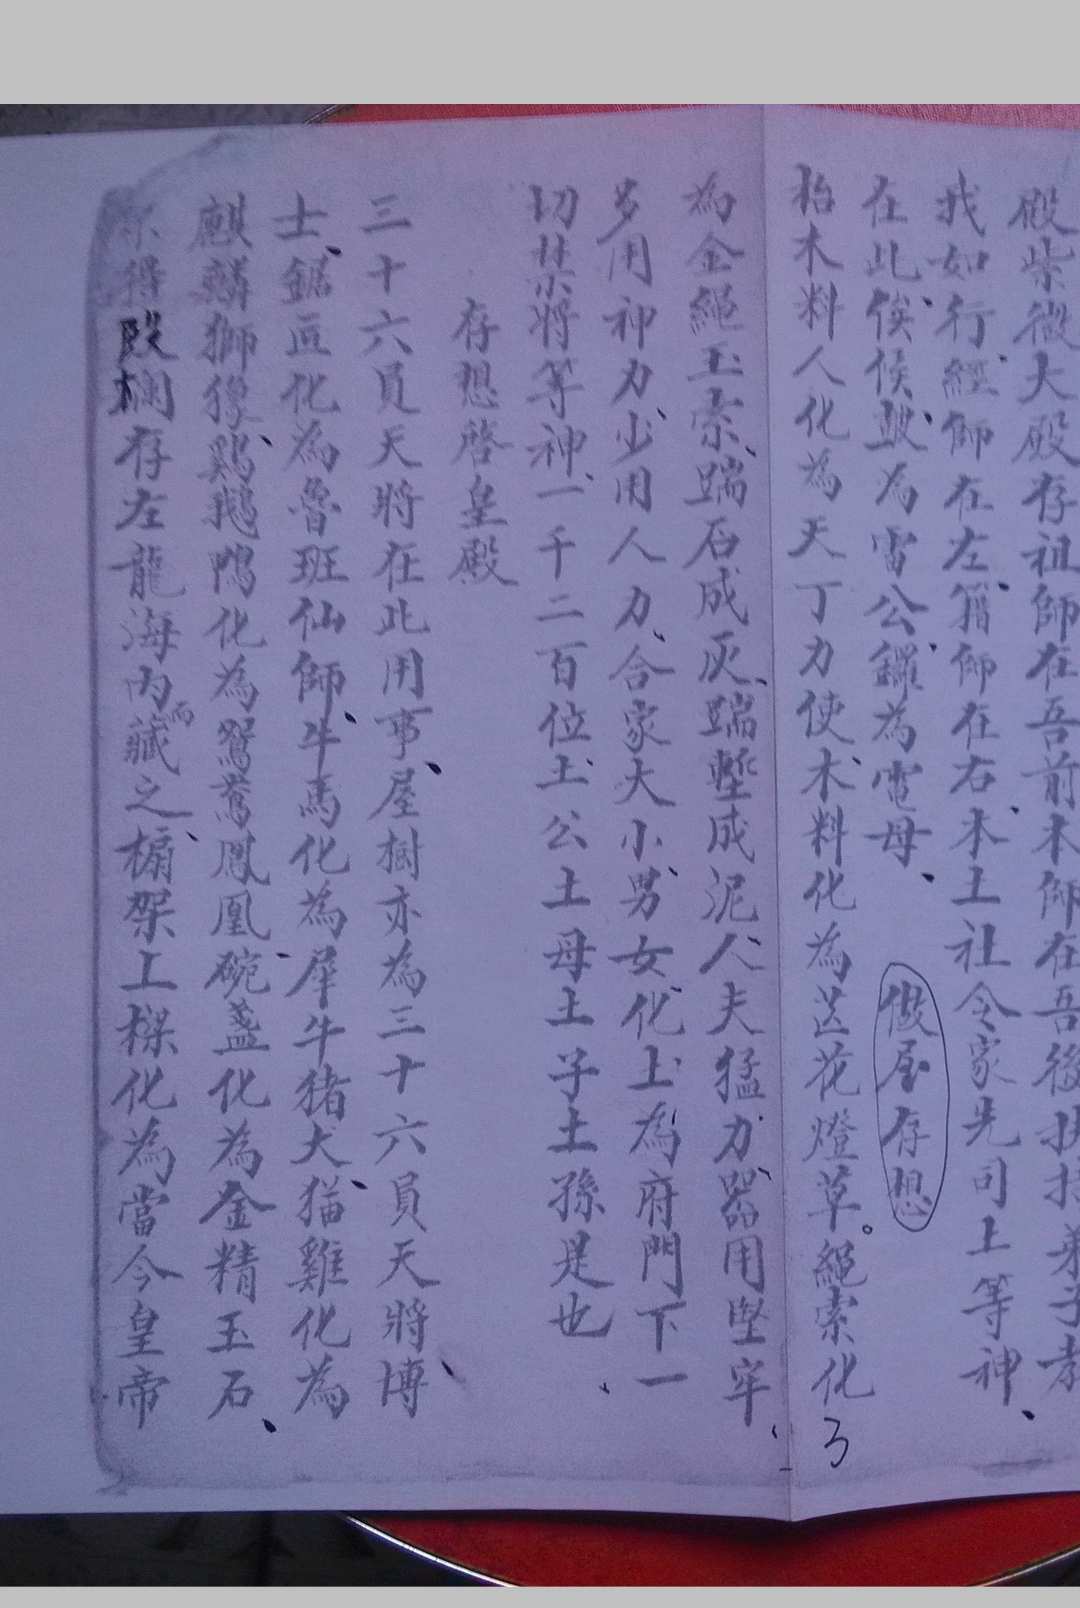 殿紫微大殿存祖師在吾前本師在吾後扶持弟子教
我如行、經師在左、籍師在右、本土社令家先司上等神、
在此侯候、鼓為雷公、鑼為電母、
做屋存想
抬木料人化為天丁力使、木料化為芯花燈草。繩索化
為金繩玉索、踹石成灰、踹塹成泥、人夫猛力、器用堅牢、
多用神力、少用人力、合家大小、男女化上為府門下一
切禁將等神、一千二百位、土公土母土子土孫是也、
存想啓皇殿
三十六員天將在此用事、屋樹亦為三十六員天將、博
士、鋸匠化為魯班仙師、牛馬化為犀牛、猪犬猫雞化為
麒麟獅像、鷄鵝鴨化為鴛鴦鳳凰、碗盞化為金精玉石、
得段欄存左龍海內而藏之、榍架上樑化為當今皇帝
3